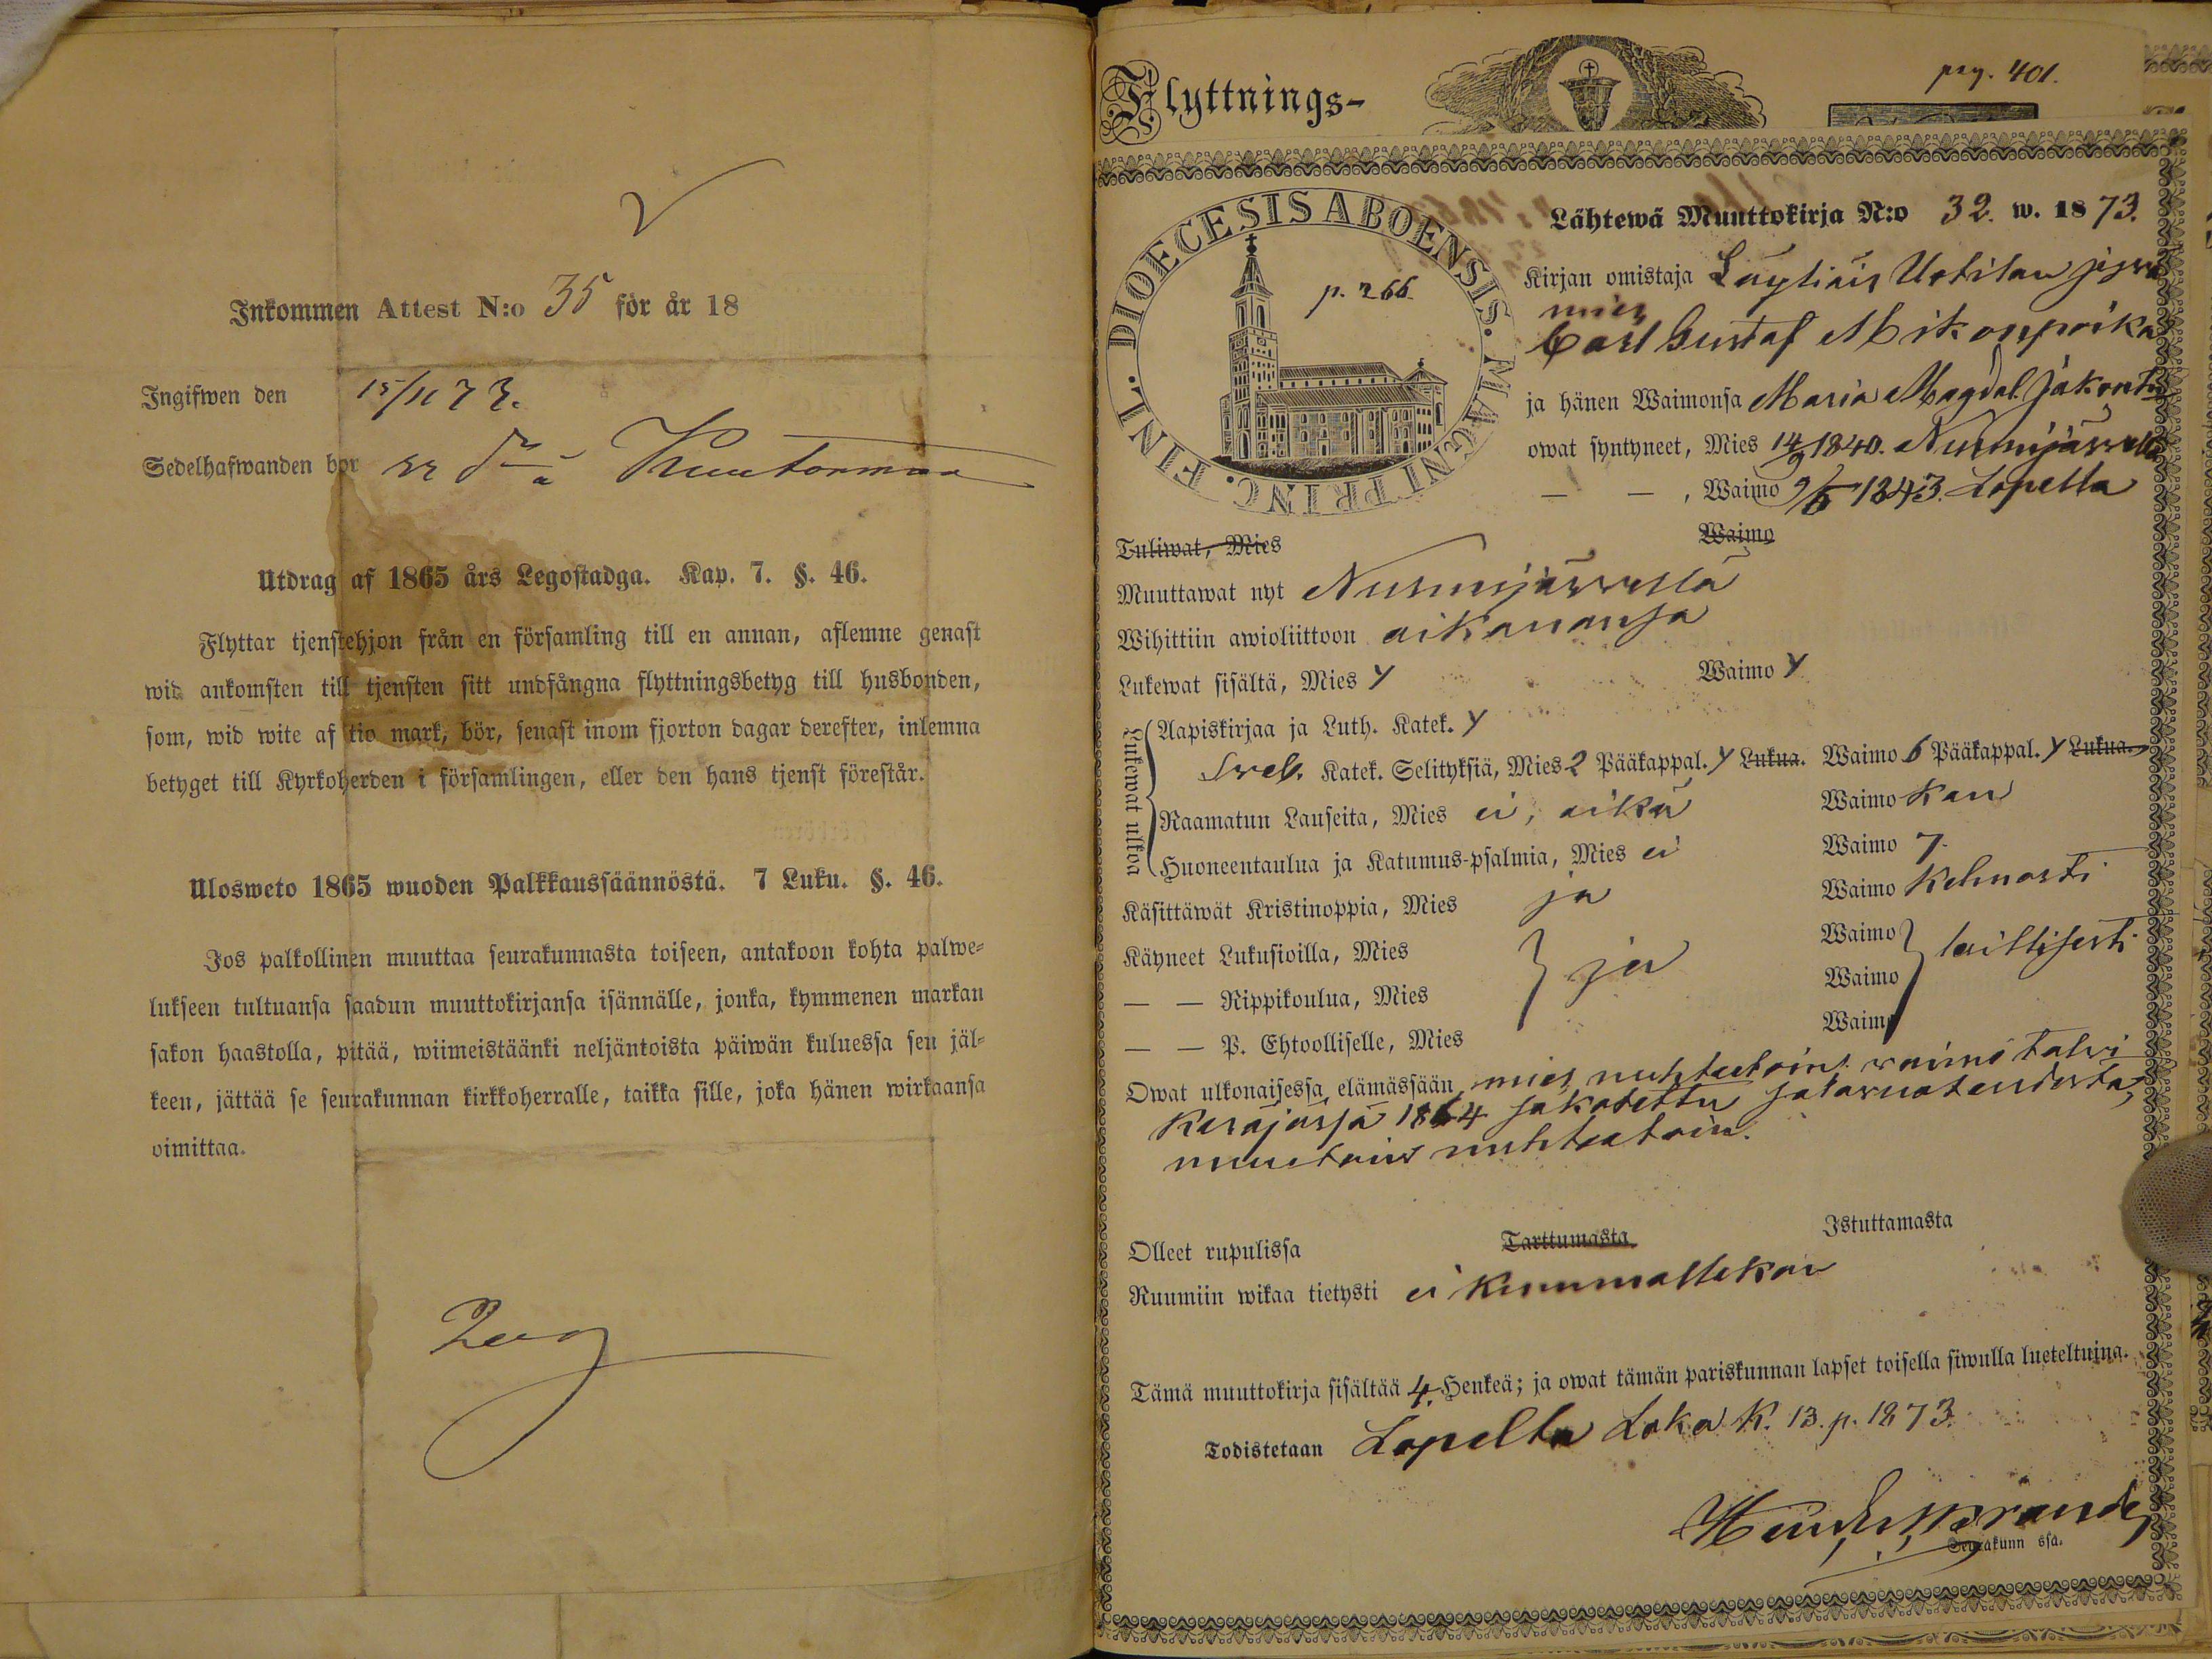 Inkommen Attest N:o 35 för år 18
Ingifwen den 15/11 73.
Sedelhafwanden bor
Utdrag af 1865 års Legostadga. Kap. 7. §. 46.
Flyttar tjenstehjon från en församling till en annan, aflemne genast
wid ankomsten till tjensten sitt undfångna flyttningsbetyg till husbonden,
som, wid wite af tio mark, bör, senast inom fjorton dagar derefter, inlemna
betyget till Kyrkoherden i församlingen, eller den hans tjenst förestår.
Ulosweto 1865 wuoden Palkkaussäännöstä. 7 Luku. §. 46.
Jos palkollinen muuttaa seurakunnasta toiseen, antakoon kohta palwe-
lukseen tultuansa saadun muuttokirjansa isännälle, jonka, kymmenen markan
sakon haastolla, pitää, wiimeistäänki neljäntoista päiwän kuluessa sen jäl-
keen, jättää se seurakunnan kirkkoherralle, taikka sille, joka hänen wirkaansa
oimittaa.
Flyttnings-
pag. 401.
DIOECESIS ABOENSIS. MAGNI PRINC. FINL.
p. 266.
Lähtewä Muuttokirja N:o 32. w. 1873.
Kirjan omistaja
mies
Carl Gustaf Mikonpoika
ja hänen Waimonsa Maria Magdal. Jakontr
owat syntyneet, Mies 14/9 1840. Nurmijärwellä
— — , Waimo 9/5 1843. Lopella
Tuliwat, Mies Waimo
Muuttawat nyt Nurmijärwellä
Wihittiin awioliittoon aikanansa
Lukewat sisältä, Mies y Waimo y
Lukewat ulkoa
Aapiskirjaa ja Luth. Katek. y
Sreb. Katek. Selityksiä, Mies 2 Pääkappal. y Lukua. Waimo 6 Pääkappal. y Lukua.
Raamatun Lauseita, Mies ei, Waimo
Huoneentaulua ja Katumus-psalmia, Mies ei Waimo 7.
Käsittäwät Kristinoppia, Mies ja Waimo kelwosti
Käyneet Lukusioilla, Mies Waimo
— — Rippikoulua, Mies ja Waimo laillisesti
— — P. Ehtoolliselle, Mies Waimo
Owat ulkonaisessa elämässään mies nuhteetoin, waimo talwi
käräjässä 1864 sakotettu salawuoteudesta,
muutoin nuhteetoin.
Olleet rupulissa Tarttumasta Istuttamasta
Ruumiin wikaa tietysti ei kummallakan
Tämä muuttokirja sisältää 4. Henkeä; ja owat tämän pariskunnan lapset toisella siwulla lueteltuina.
Todistetaan Lopella Loka K. 13. p. 1873.
Seurakunn ssa.